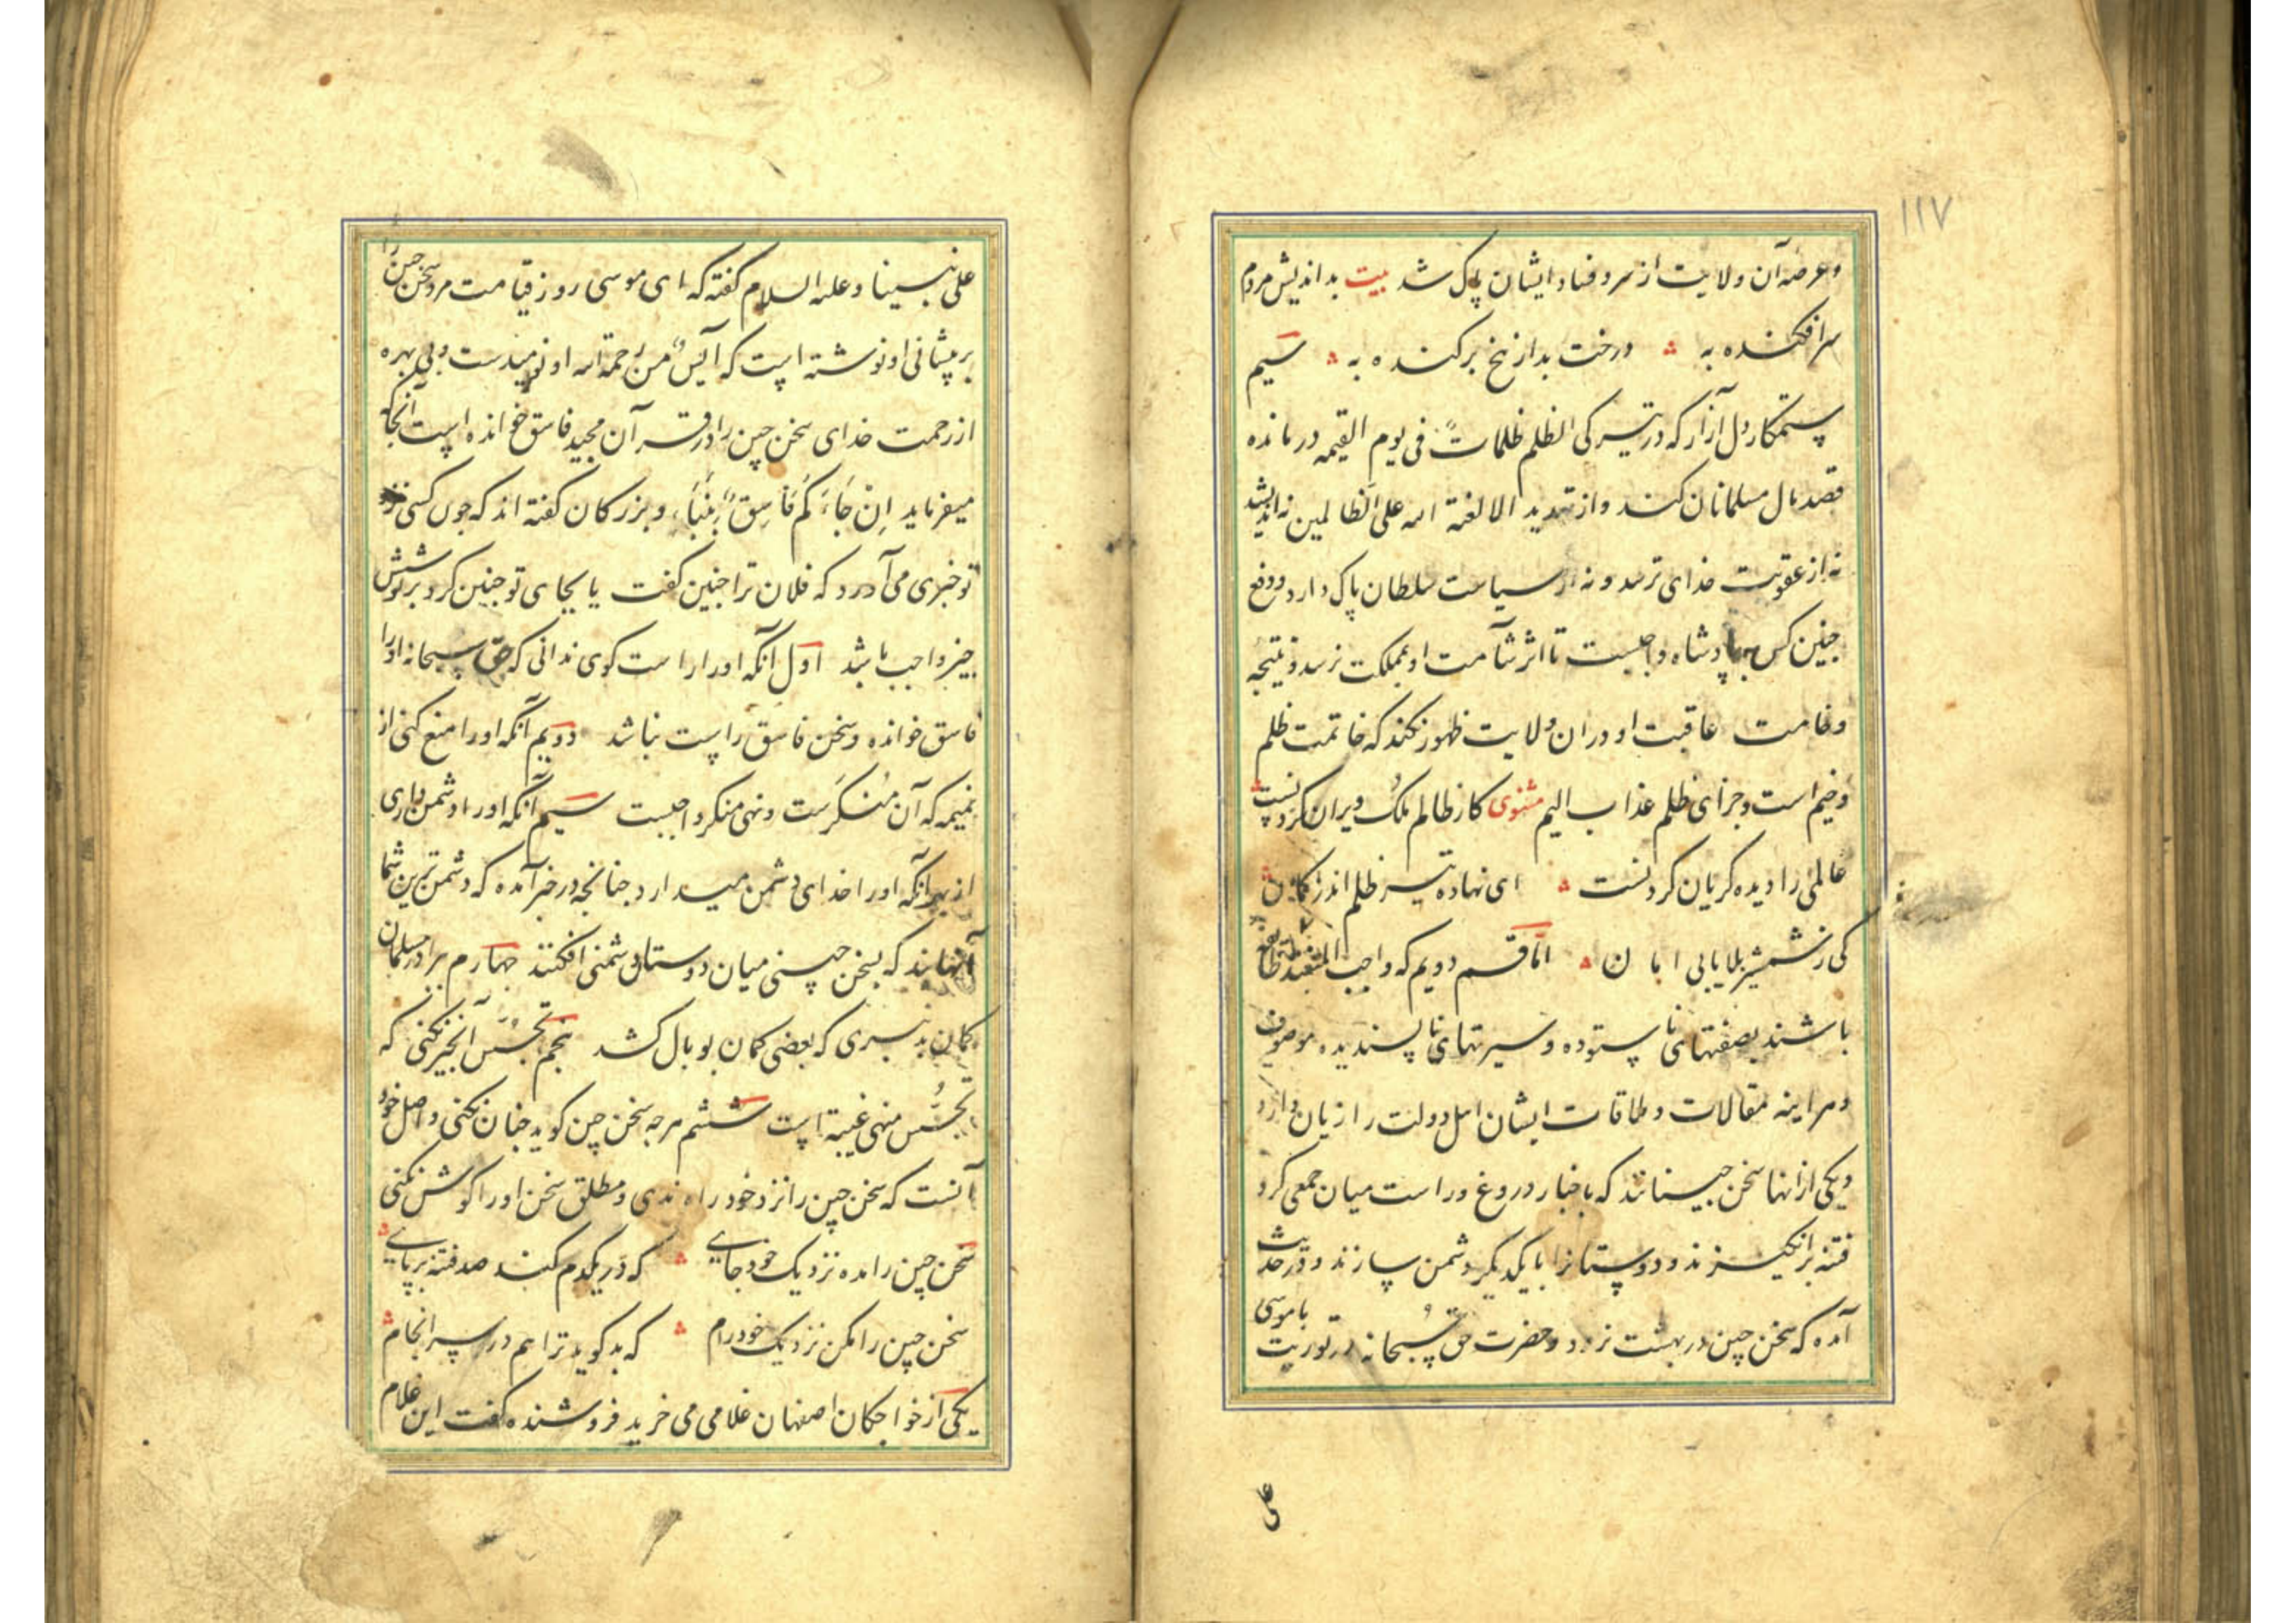 ۱۱۷
و عرصه آن ولایت از شر و فساد ایشان پاک شد بیت بداندیش مردم
سرافکنده به درخت بد از بیخ برکنده به سیم
ستمکار دل آزار که در تیرگی الظلم ظلمات فی یوم القیمه درمانده
قصد مال مسلمانان کند و از تهدید الا لعنة الله علی الظالمین نه اندیشد
نه از عقوبت خدای ترسد و نه از سیاست سلطان باک دارد و دفع
چنین کس بر پادشاه واجبست تا اثر شآمت او بمملکت نرسد و نتیجه
وخامت عاقبت او در ان ولایت ظهور نکند که خاتمت ظلم
وخیم است و جزای ظلم عذاب الیم مثنوی کار ظالم ملک ویران کردنست
عالمی را دیده کریان کردنست ای نهاده تیر ظلم اندر کمان
کی ز شمشیر بلا یابی امان اما قسم دویم که واجب
باشند بصفتهای نا ستوده و سیرتهای نا پسندیده موصوف
و هر اینه مقالات و ملاقات ایشان اهل دولت را زیان دارد
و یکی از انها سخن چینانند که باخبار دروغ و راست میان جمعی کرد
فتنه برانکیزند و دوستانرا با یکدیکر دشمن سازند و در حدیث
آمده که سخن چین در بهشت نرود و حضرت حق سبحانه در توریت با موسی
علی
علی نبینا و علیه السلام کفته که ای موسی روز قیامت مرد سخن چین را
بر پیشانی او نوشته است که آیس من رحمة الله او نومیدست و بی بهره
از رحمت خدای سخن چین را در قرآن مجید فاسق خوانده است آنجا که
میفرماید ان جاءکم فاسق بنبأ و بزرکان کفته اند که چون کسی نزد
تو خبری می آورد که فلان ترا چنین کفت یا بجای تو چنین کرد بر تو شش
چیز واجب باشد اول آنکه او را راست کوی ندانی که حق سبحانه او را
فاسق خوانده و سخن فاسق راست نباشد دویم آنکه او را منع کنی از
نمیمه که آن منکرست و نهی منکر واجبست سیم آنکه او را دشمن داری
از بهر آنکه او را خدای دشمن میدارد چنانچه در خبر آمده که دشمن ترین شما
آنهااند که بسخن چینی میان دوستان دشمنی افکنند چهارم برادر مسلمان
کمان بد نبری که بعضی کمان بوبال کشد پنجم تجسس آن خبر نکنی که
تجسس منهی است ششم هر چه سخن چین کوید چنان نکنی و اصل خود
آنست که سخن چین را نزد خود راه ندهی و مطلق سخن او را کوش نکنی
سخن چین را مده نزدیک خود جای که در یکدم کند صد فتنه بر پای
سخن چین را مکن نزدیک خود رام که بد کوید ترا هم در سرانجام
یکی از خواجکان اصفهان غلامی می خرید فروشنده کفت این غلام